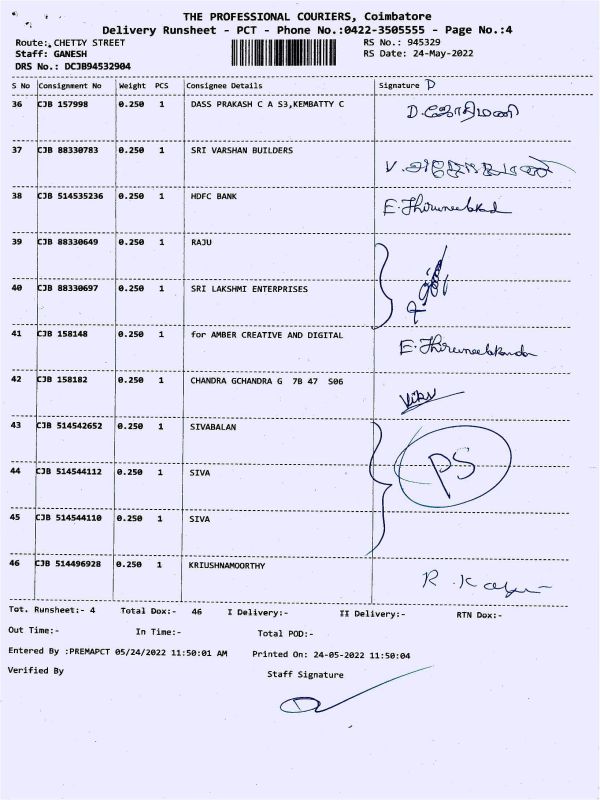 THE PROFESSIONAL COURIERS, Coimbatore
Delivery Runsheet - PCT - Phone No.:0422-3505555 - Page No.:4
Route: CHETTY STREET
RS No.: 945329
Staff: GANESH
RS Date: 24-May-2022
DRS No.: DCJB94532904
S No Consignment No Weight PCS Consignee Details Signature D
36 CJB 157998 0.250 1 DASS PRAKASH C A S3,KEMBATTY C D. ஜோதிமணி
37 CJB 88330783 0.250 1 SRI VARSHAN BUILDERS V.
38 CJB 514535236 0.250 1 HDFC BANK E. Thiruneelakad
39 CJB 88330649 0.250 1 RAJU
40 CJB 88330697 0.250 1 SRI LAKSHMI ENTERPRISES
41 CJB 158148 0.250 1 for AMBER CREATIVE AND DIGITAL E. Thiruneelakandan
42 CJB 158182 0.250 1 CHANDRA GCHANDRA G 7B 47 S06
43 CJB 514542652 0.250 1 SIVABALAN
44 CJB 514544112 0.250 1 SIVA PS
45 CJB 514544110 0.250 1 SIVA
46 CJB 514496928 0.250 1 KRIUSHNAMOORTHY R.
Tot. Runsheet:- 4 Total Dox:- 46 I Delivery:- II Delivery:- RTN Dox:-
Out Time:- In Time:- Total POD:-
Entered By :PREMAPCT 05/24/2022 11:50:01 AM Printed On: 24-05-2022 11:50:04
Verified By Staff Signature